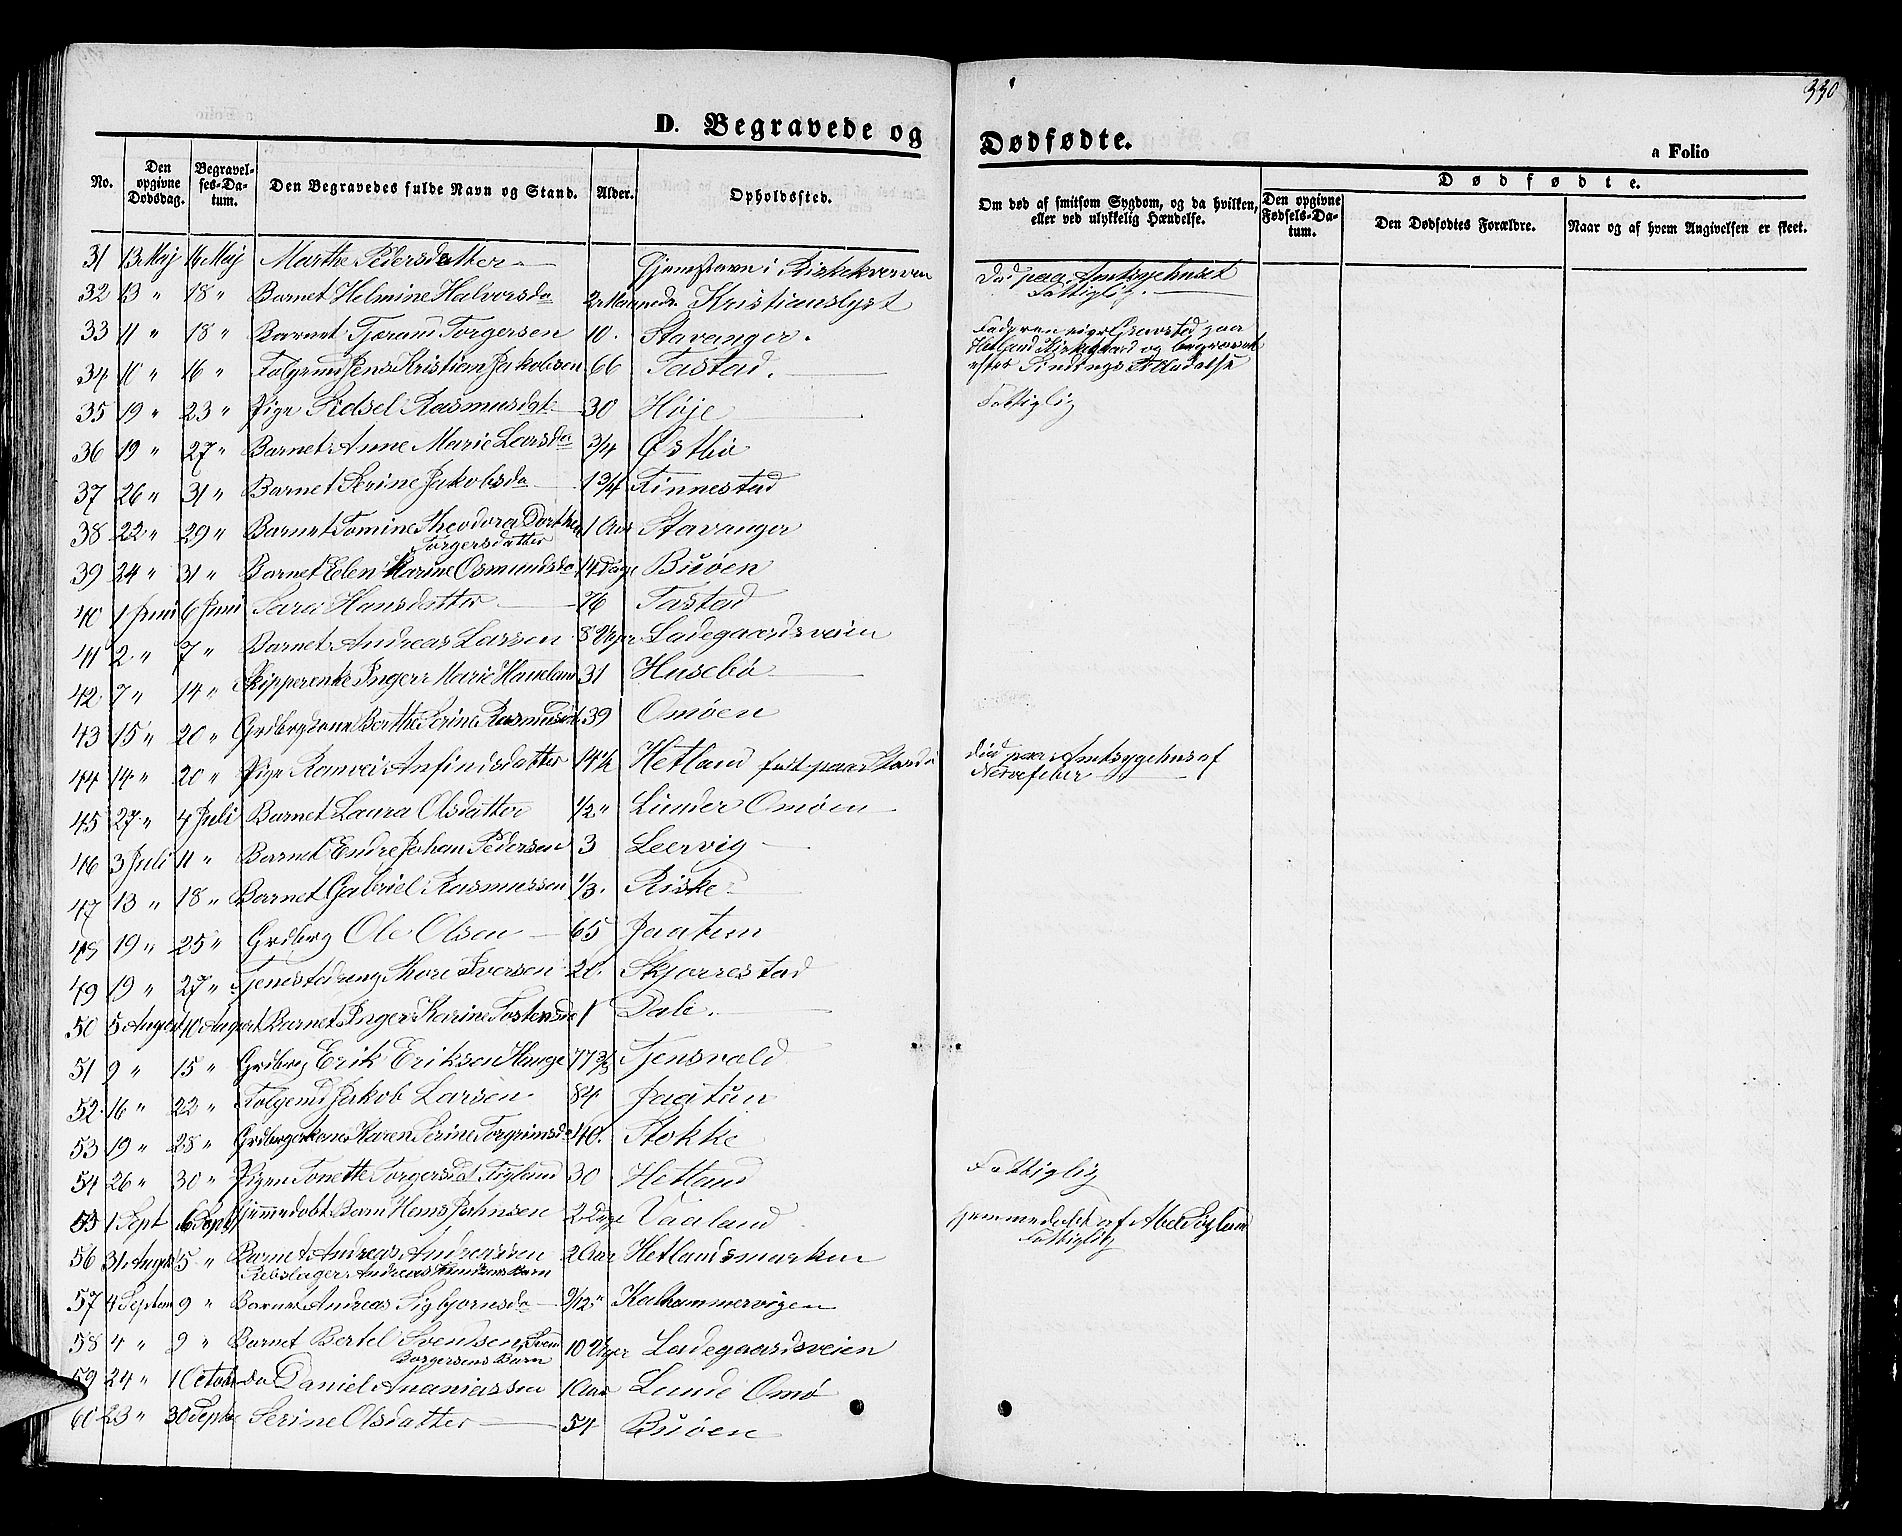 330
D. Begravede og Dødfødte.
a Folio
No.
Den opgivne Dødsdag.
Begravelses-Datum.
Den Begravedes fulde Navn og Stand.
Alder.
Opholdssted.
Om død af smitsom Sygdom, og da hvilken, eller ved ulykkelig Hændelse.
Dødfødte.
Den opgivne Fødsels-Datum.
Den Dødfødtes Forældre.
Naar og af hvem Angivelsen er skeet.
31 13 Maj 16 Maj Marthe Pedersdatter Hjemstavn i Riskekverven Død paa Amtsygehuset
32 13 " 18 " Barnet Helmine Halvorsda 2 Maaneder Kristianslyst Fattiglig.
33 11 " 18 " Barnet Gjerani Torgersen 10. Stavanger. Faderen eier Gravsted paa
Hetland Kirkegaard og begravet
34 10 " 16 " Folgemd Jens Kristian Jakobsen 66 Tastad. efter Tilladelse
35 19 " 23 " Pige Sidsel Rasmusdat 30 Høje Fattiglig
36 19 " 27 " Barnet Anne Marie Larsda 3/4 Østbø
37 26 " 31 " Barnet Serine Jakobsda 1 3/4 Finnestad
38 22 " 29 " Barnet Tomine Theodora Dorthea 1 Aar Stavanger
Torgersdatter
39 24 " 31 " Barnet Elen Karine Osmundsda 14 Dage Buøen
40 1 Juni 6 Juni Sara Hansdatter 76 Tastad
41 2 " 7 " Barnet Andreas Larsen 8 Uger Ladegaardsveien
42 7 " 14 " Skipperenke Inger Marie Haueland 31 Husebø
43 15 " 20 " Grdbrgkone Berthe Serine Rasmusdt 39 Omøen
44 14 " 20 " Pige Ranvei Anfindsdatter 14 1/2 Hetland født paa Død paa Amtsygehus af
Nervefeber
45 27 " 4 Juli Barnet Laura Olsdatter 1/2 " Lunder Omøen
46 3 Juli 11 " Barnet Endre Johan Pedersen 3 Leervig
47 13 " 18 " Barnet Gabriel Rasmussen 1/3. Riske
48 19 " 25 " Grdbrg Ole Olsen 65 Jaatun
49 19 " 27 " Tjenestedreng Thore Iversen 20. Skjørrestad
50 5 August 10 August Barnet Inger Karine Tostensda 1 Dale.
51 9 " 15 " Grdbrg Erik Eriksen Hauge 77 2/3 Tjensvold
52 16 " 22 " Folgemd Jakob Larsen 84 Jaatun
53 19 " 25 " Grdbrgerkone Karen Serine Torgrimsda 40. Stokke
54 26 " 30 " Pigen Tonette Torgersdat Figland 30 Hetland Fattiglig
55 1 Sept 6 Sept Hjemmedøbt Barn Hans Johnsen 2 Dage Vaaland Hjemmedøbt af Abel
Fattiglig
56 31 August 5 " Barnet Andreas Andreassen 2 Aar Hetlandsmarken
Rebslager Andreas Barn
57 4 Septem 9 " Barnet Andreas Sigbjørnsda 9/12 " Kalhammervigen
58 4 " 9 " Barnet Bertel Svendsen, Svend 10 Uger Ladegaardsveien
Borgersens Barn
59 24 " 1 Octobr do Daniel Ananiassen 1 Aar Lunde Omø
60 23 " 30 Septbr Serine Olsdatter 54 Buøen